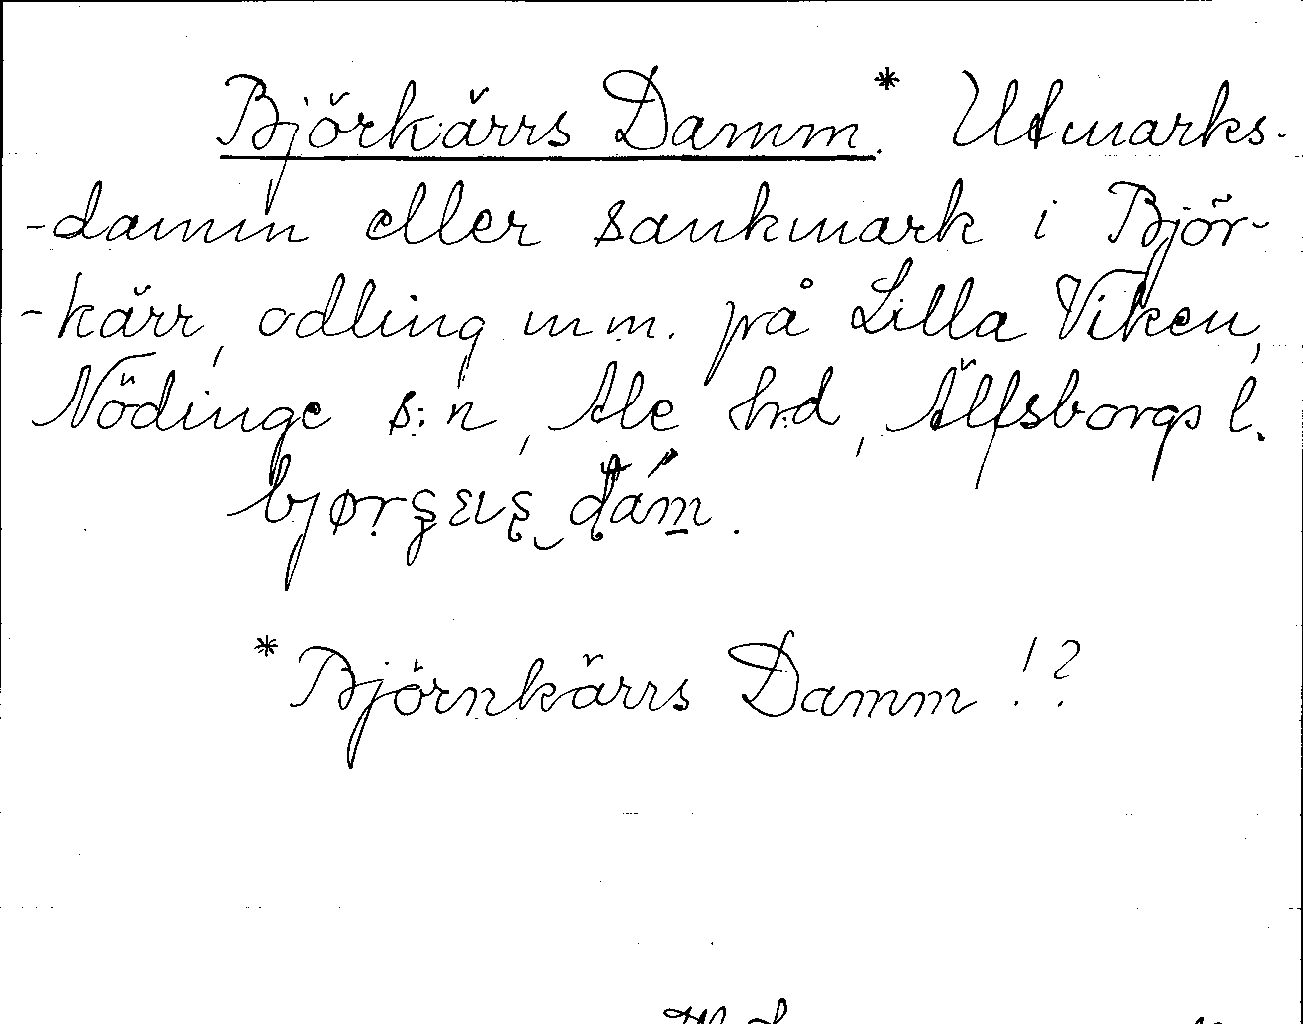 Björkärrs Damm.* Utmarks-
-damm eller sankmark i Björ-
-kärr, odling m.m. på Lilla Viken,
Nödinge s:n, Ale h:d, Älfsborgs l.
*Björnkärrs Damm!?